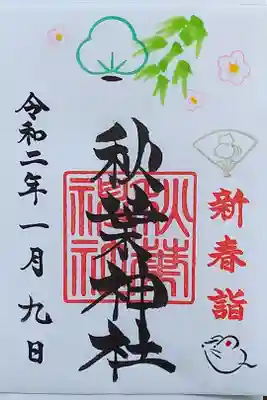 新春詣
秋葉神社
秋葉神社
令和二年一月九日